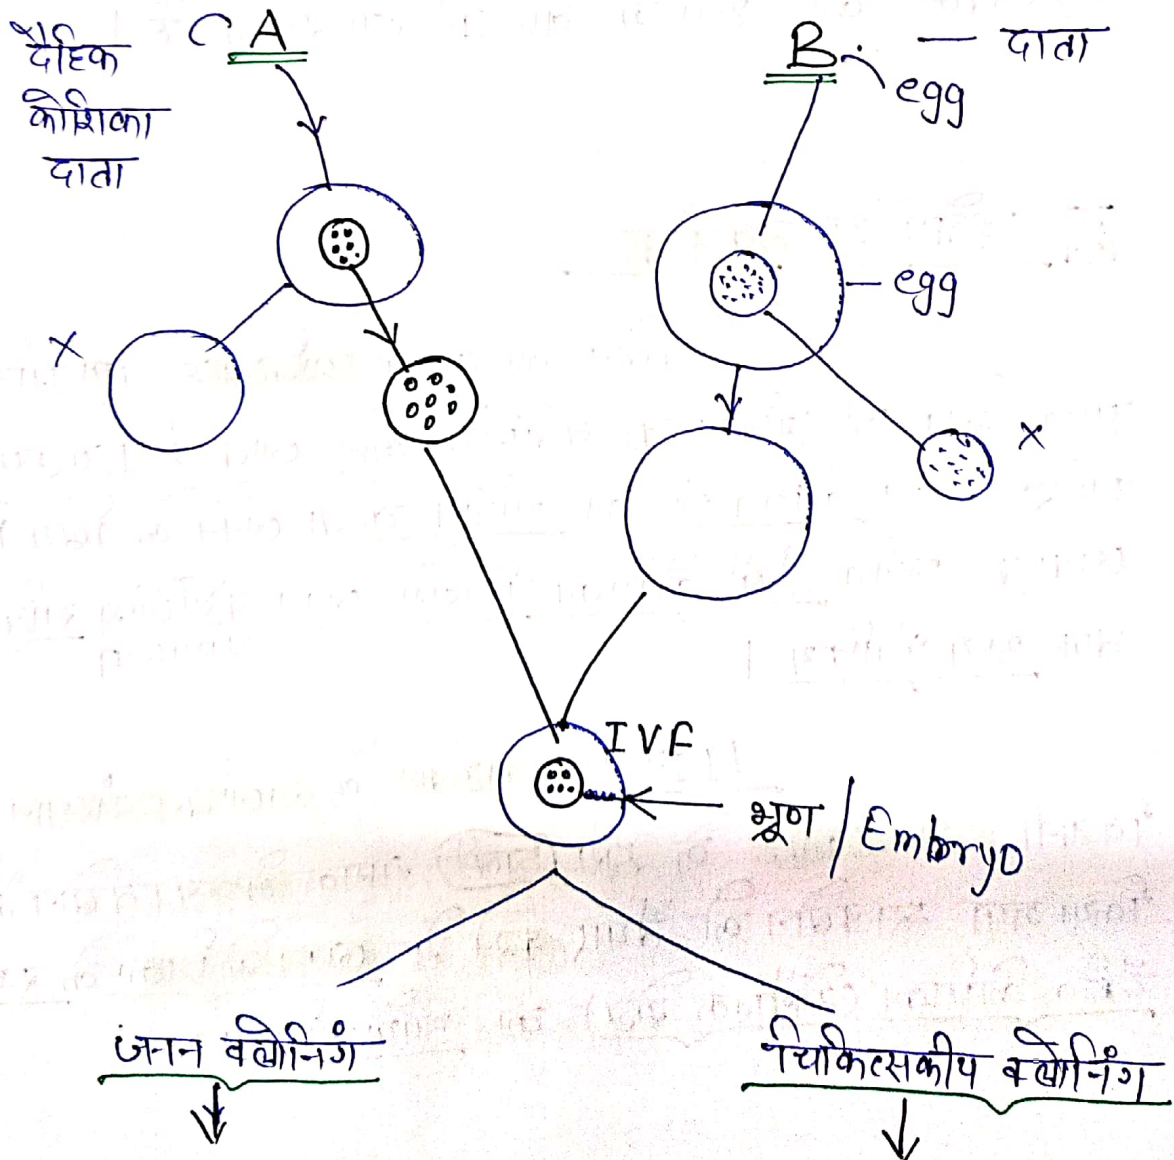 दैहिक
कोशिका
दाता
A
B
egg
— दाता
egg
X
X
IVF
भ्रूण / Embryo
जनन क्लोनिंग
चिकित्सकीय क्लोनिंग